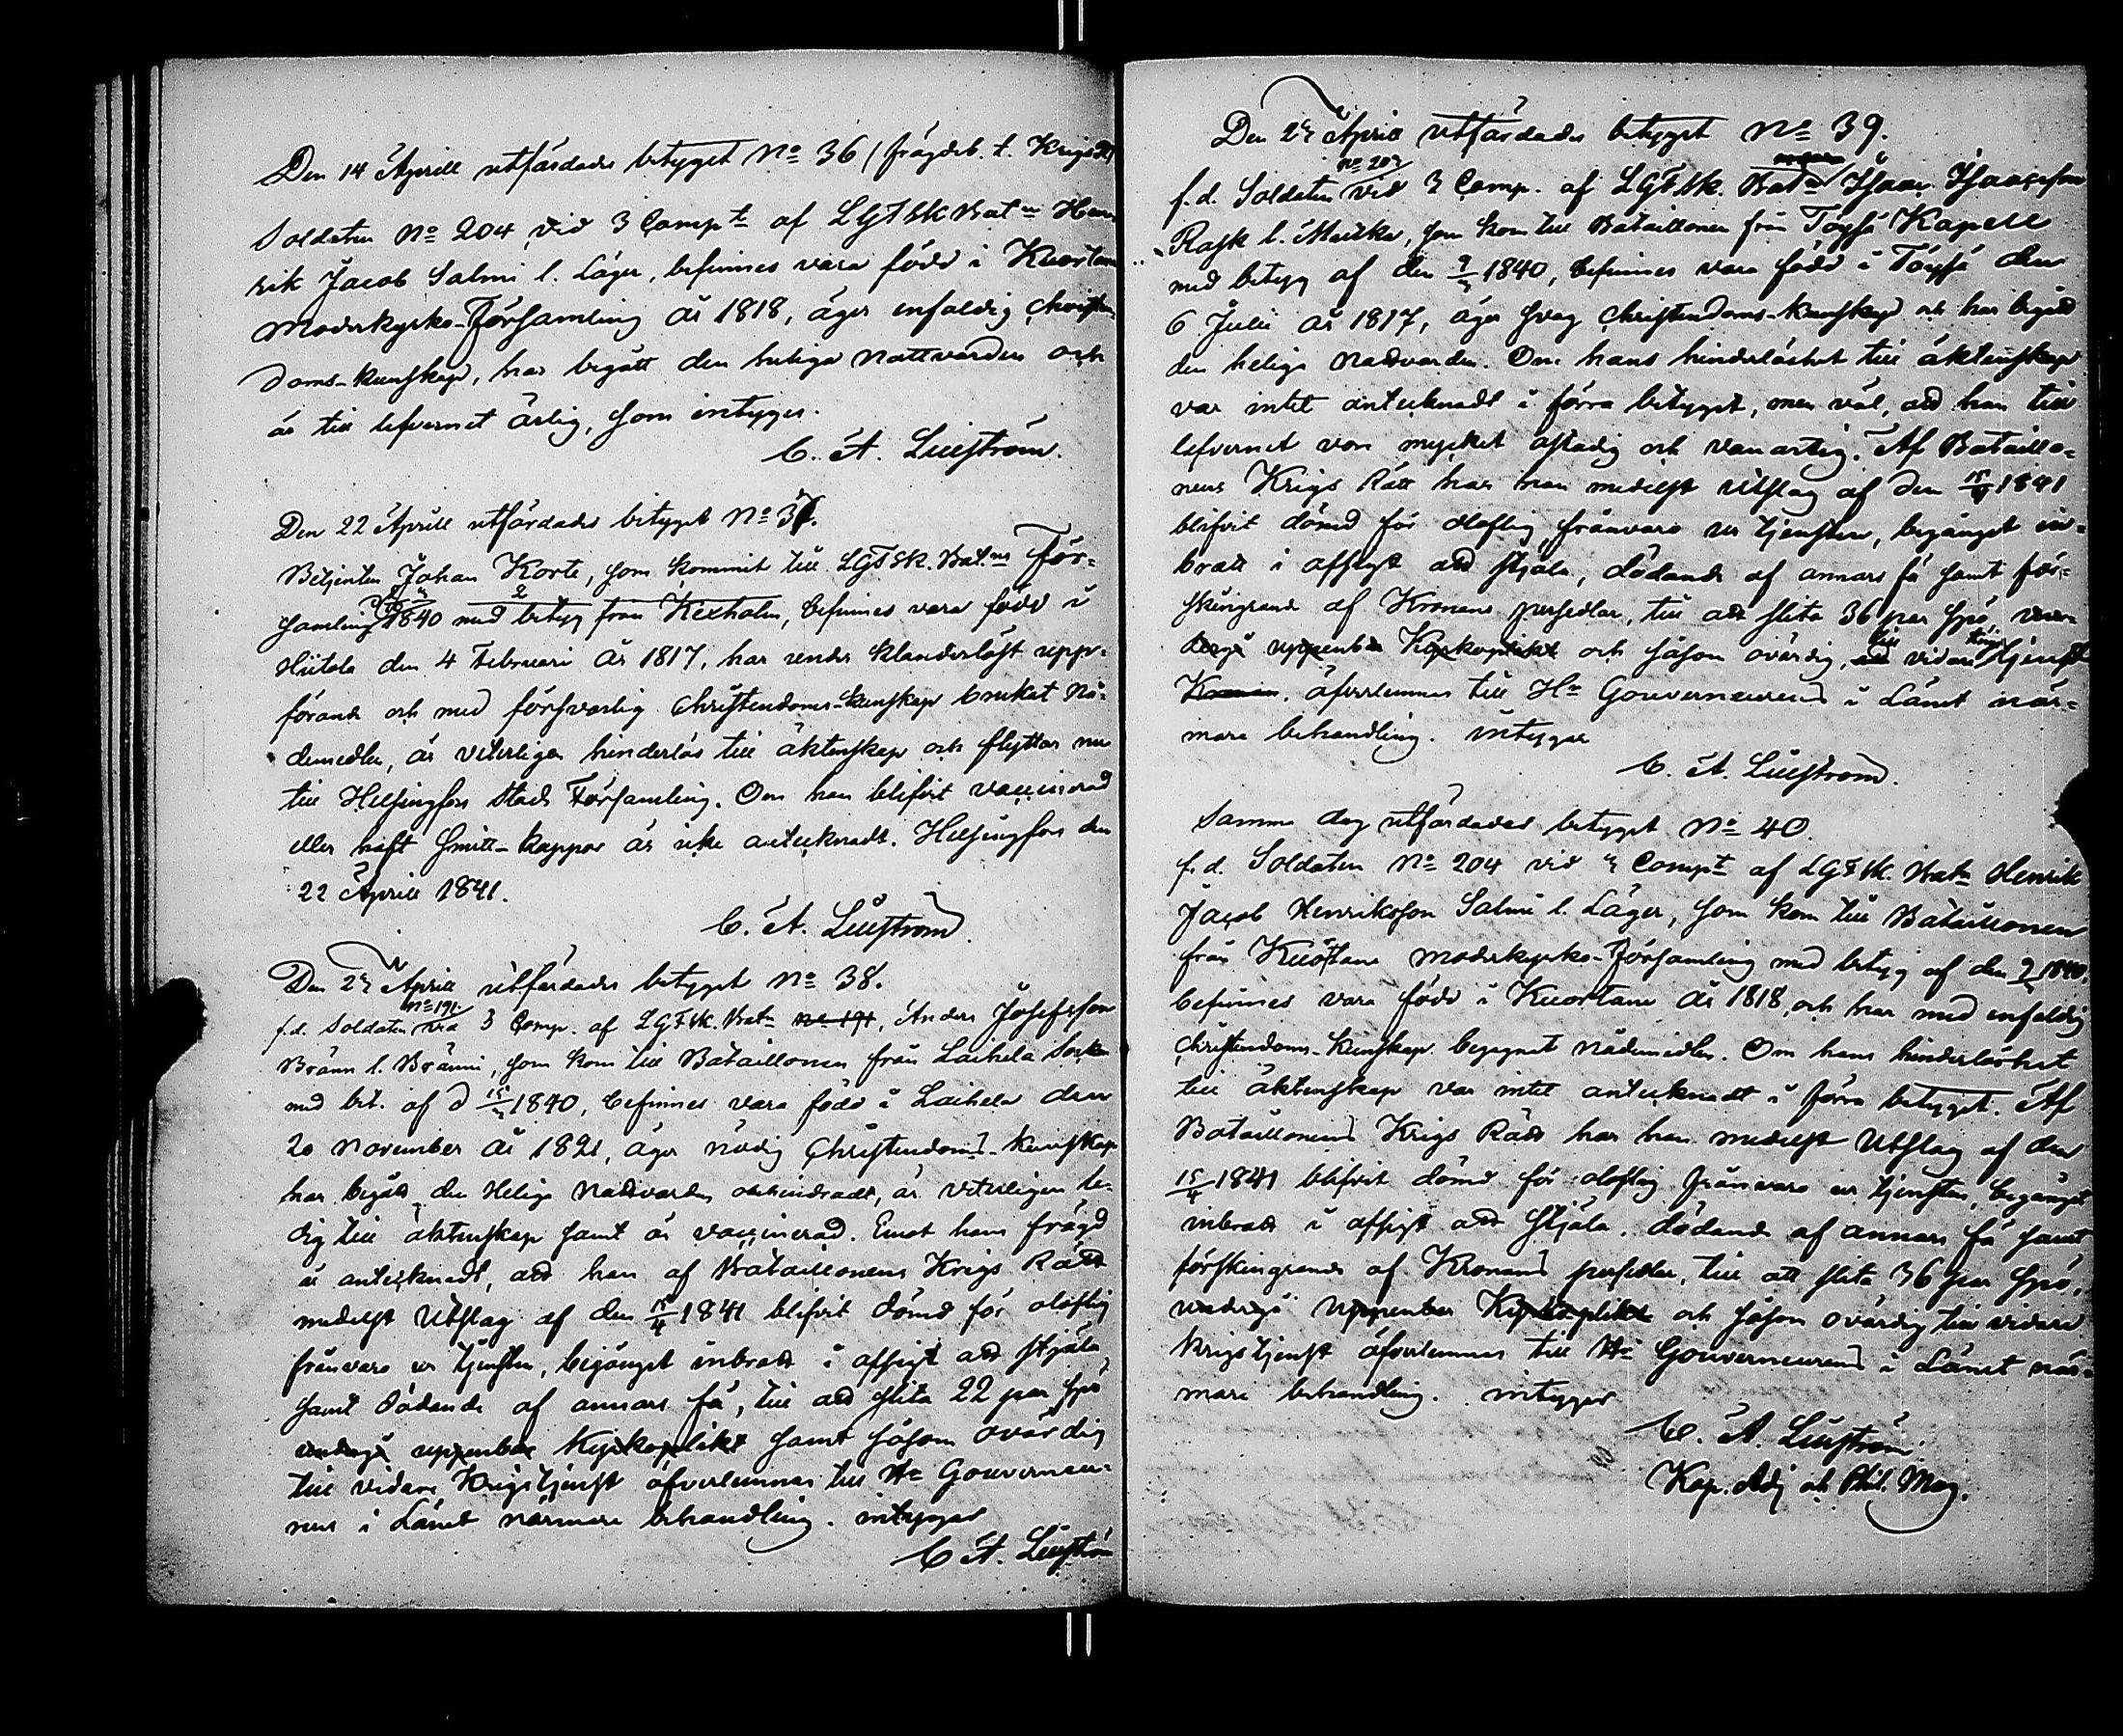 Den 14 Aprill utfärdades betyget No 36 (frägdeb. t. Krigsrätt)
Soldaten No 204 vid 3 Compt af LGFSk Batn Hen-
rik Jacob Salmi l. Läger, befinnes vara född i Kuortane
Moderkyrko-Församling år 1818, äger enfaldig christen-
doms-kunskap, har begått den heliga nattvarden och
är till lefvernet ärlig, som intygar.
C. A. Liliström.
Den 22 Aprill utfärdades betyget No 37.
Betjenten Johan Korte, som kommit till LGFSk. Batns För-
samling 1840 med betyg från Kexholm, befinnes vara född i
Hiitola den 4 Februari år 1817, har under klanderlöst upp-
förande och med försvarlig Christendoms-kunskap brukat Nå-
demedlen, är veterligen hinderlös till äktenskap och flyttar nu
till Helsingfors stads Församling. Om han blifvit vaccinerad
eller haft smitt-koppor är icke antecknadt. Helsingfors den
22 Aprill 1841.
C. A. Liliström.
Den 23 Aprill utfärdades betyget No 38.
No 191
f.d. Soldaten vid 3 Comp. af LGFSk. Batn No 191, Anders Josefsson
Bränn l. Bränni, som kom till Bataillonen från Laihela Socken
med bet. af d 15/3 1840, befinnes vara född i Laihela den
20 November år 1821, äger nödig Christendoms-kunskap
har begått den Helige Nattvarden obehindradt, är veterligen le-
dig till äktenskap samt är vaccinerad. Emot hans frägd
är antecknadt, att han af Bataillonens Krigs Rätt
medelst Utslag af den 15/4 1841 blifvit dömd för oloflig
frånvaro ur tjensten, begånget inbrott i afsigt att stjäla
samt dödande af annars få, till att slita 22 par spö
undergå uppenbar Kyrkoplikt samt såsom ovärdig
till vidare Krigstjenst öfverlemnas till Hr Gouverneu-
rens i Länet närmare behandling. intygar
C A. Liliström
Den 23 Aprill utfärdades betyget No 39.
No 203
f.d. Soldaten vid 3 Comp. af LGFSk. Batn Isaac Isaacsson
Rask l. Marika, som kom till Bataillonen från Töysä Kapell
med betyg af den 9/3 1840, befinnes vara född i Töysä den
6 Julii år 1817, äger svag Christendoms-kunskap och har begått
den heliga Nattvarden. Om hans hinderlöshet till äktenskap
var intet antecknadt i förra betyget, men väl, att han till
lefvernet vore mycket ostadig och vanartig. Af Bataillo-
nens Krigs Rätt har han medelst Utslag af den 15/4 1841
blifvit dömd för oloflig frånvaro ur tjensten, begånget in-
brott i afsigt att stjäla, dödande af annars få samt för-
skingrande af Kronans persedlar, till att slita 36 par spö, under-
gå uppenbar Kyrkoplikt och såsom ovärdig, till vidare tjenst
Kronan, öfverlemnas till Hr Gouverneurens i Länet när-
mare behandling. intygar
C. A. Liliström.
Samma dag utfärdades betyget No 40.
f.d. Soldaten No 204 vid 3 Compt af LGFSk. Batn Henrik
Jacob Henriksson Salmi l. Läger, som kom till Bataillonen
från Kuortane Moderkyrko-Församling med betyg af den 9/3 1840,
befinnes vara född i Kuortane år 1818, och har med enfaldig
Christendoms-Kunskap begagnat nådemedlen. Om hans hinderlöshet
till äktenskap var intet antecknadt i förra betyget. Af
Bataillonens Krigs Rätt har han medelst Utslag af den
15/4 1841 blifvit dömd för oloflig frånvaro ur tjensten, begånget
inbrott i afsigt att stjäla, dödande af annars få samt
förskingrande af Kronans persedlar, till att slita 36 par spö,
undergå uppenbar Kyrkoplikt och såsom ovärdig till vidare
Krigstjenst öfverlemnas till Hr Gouverneurens i Länet när-
mare behandling. intygar
C. A. Liliström
Kap. Adj och Phil. Mag.